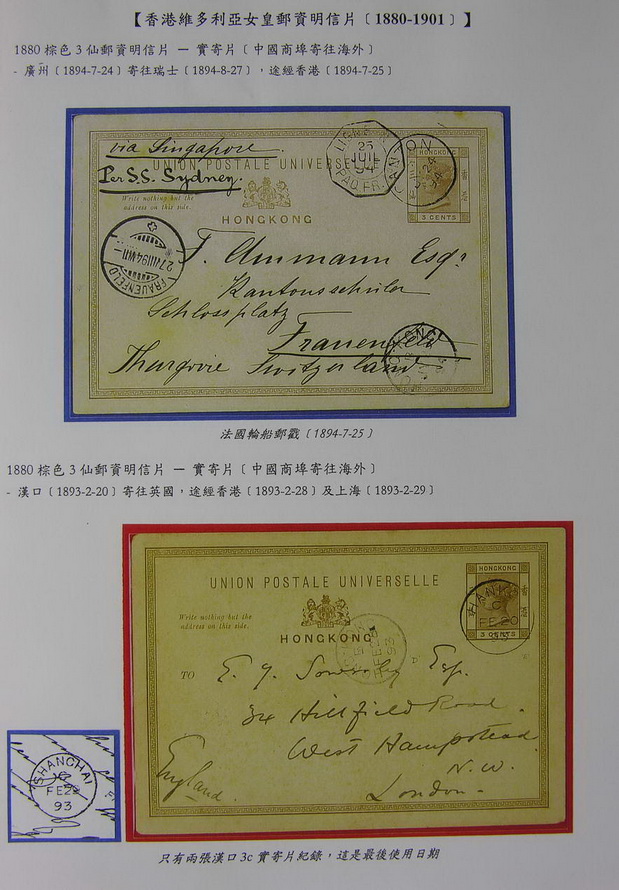 【香港維多利亞女皇郵資明信片〔1880-1901〕】
1880 棕色 3 仙郵資明信片 — 實寄片〔中國商埠寄往海外〕
- 廣州〔1894-7-24〕寄往瑞士〔1894-8-27〕，途經香港〔1894-7-25〕
via Singapore
UNION POSTALE UNIVERSELLE
Per S.S. Sydney.
Write nothing but the
address on this side.
HONGKONG
LIGNE N
25
JUIL
94
PAQ. FR.
CANTON
24
94
HONGKONG
3 CENTS
27 VIII 94
FRAUENFELD
F. Ammann Esqr
Kantonsschüler
Schlossplatz
Frauenfeld
Thurgovie Switzerland
法國輪船郵戳〔1894-7-25〕
1880 棕色 3 仙郵資明信片 — 實寄片〔中國商埠寄往海外〕
- 漢口〔1893-2-20〕寄往英國，途經香港〔1893-2-28〕及上海〔1893-2-29〕
UNION POSTALE UNIVERSELLE
Write nothing but the
address on this side.
HONGKONG
HONGKONG
香港
3 CENTS
HANK
C
FE 20
FE 28
93
D
TO E. J. Sowerby Esq.
34 Hillfield Road.
West Hampstead
N.W.
London.
England.
SHANGHAI
FE 23
93
只有兩張漢口 3c 實寄片紀錄，這是最後使用日期